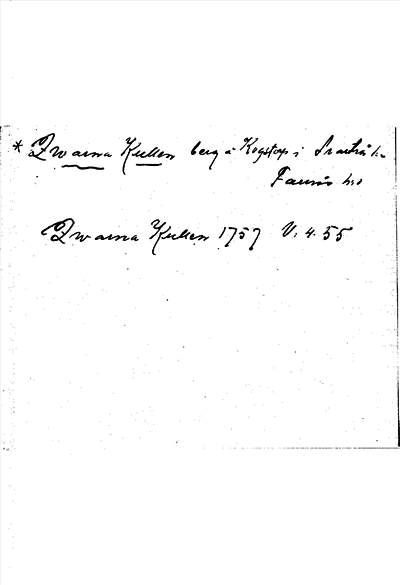 * Qwarna Kullen berg å Kogstorp i Svartrå sn
Faurås hd
Qwarna Kullen 1757 V. 4. 55